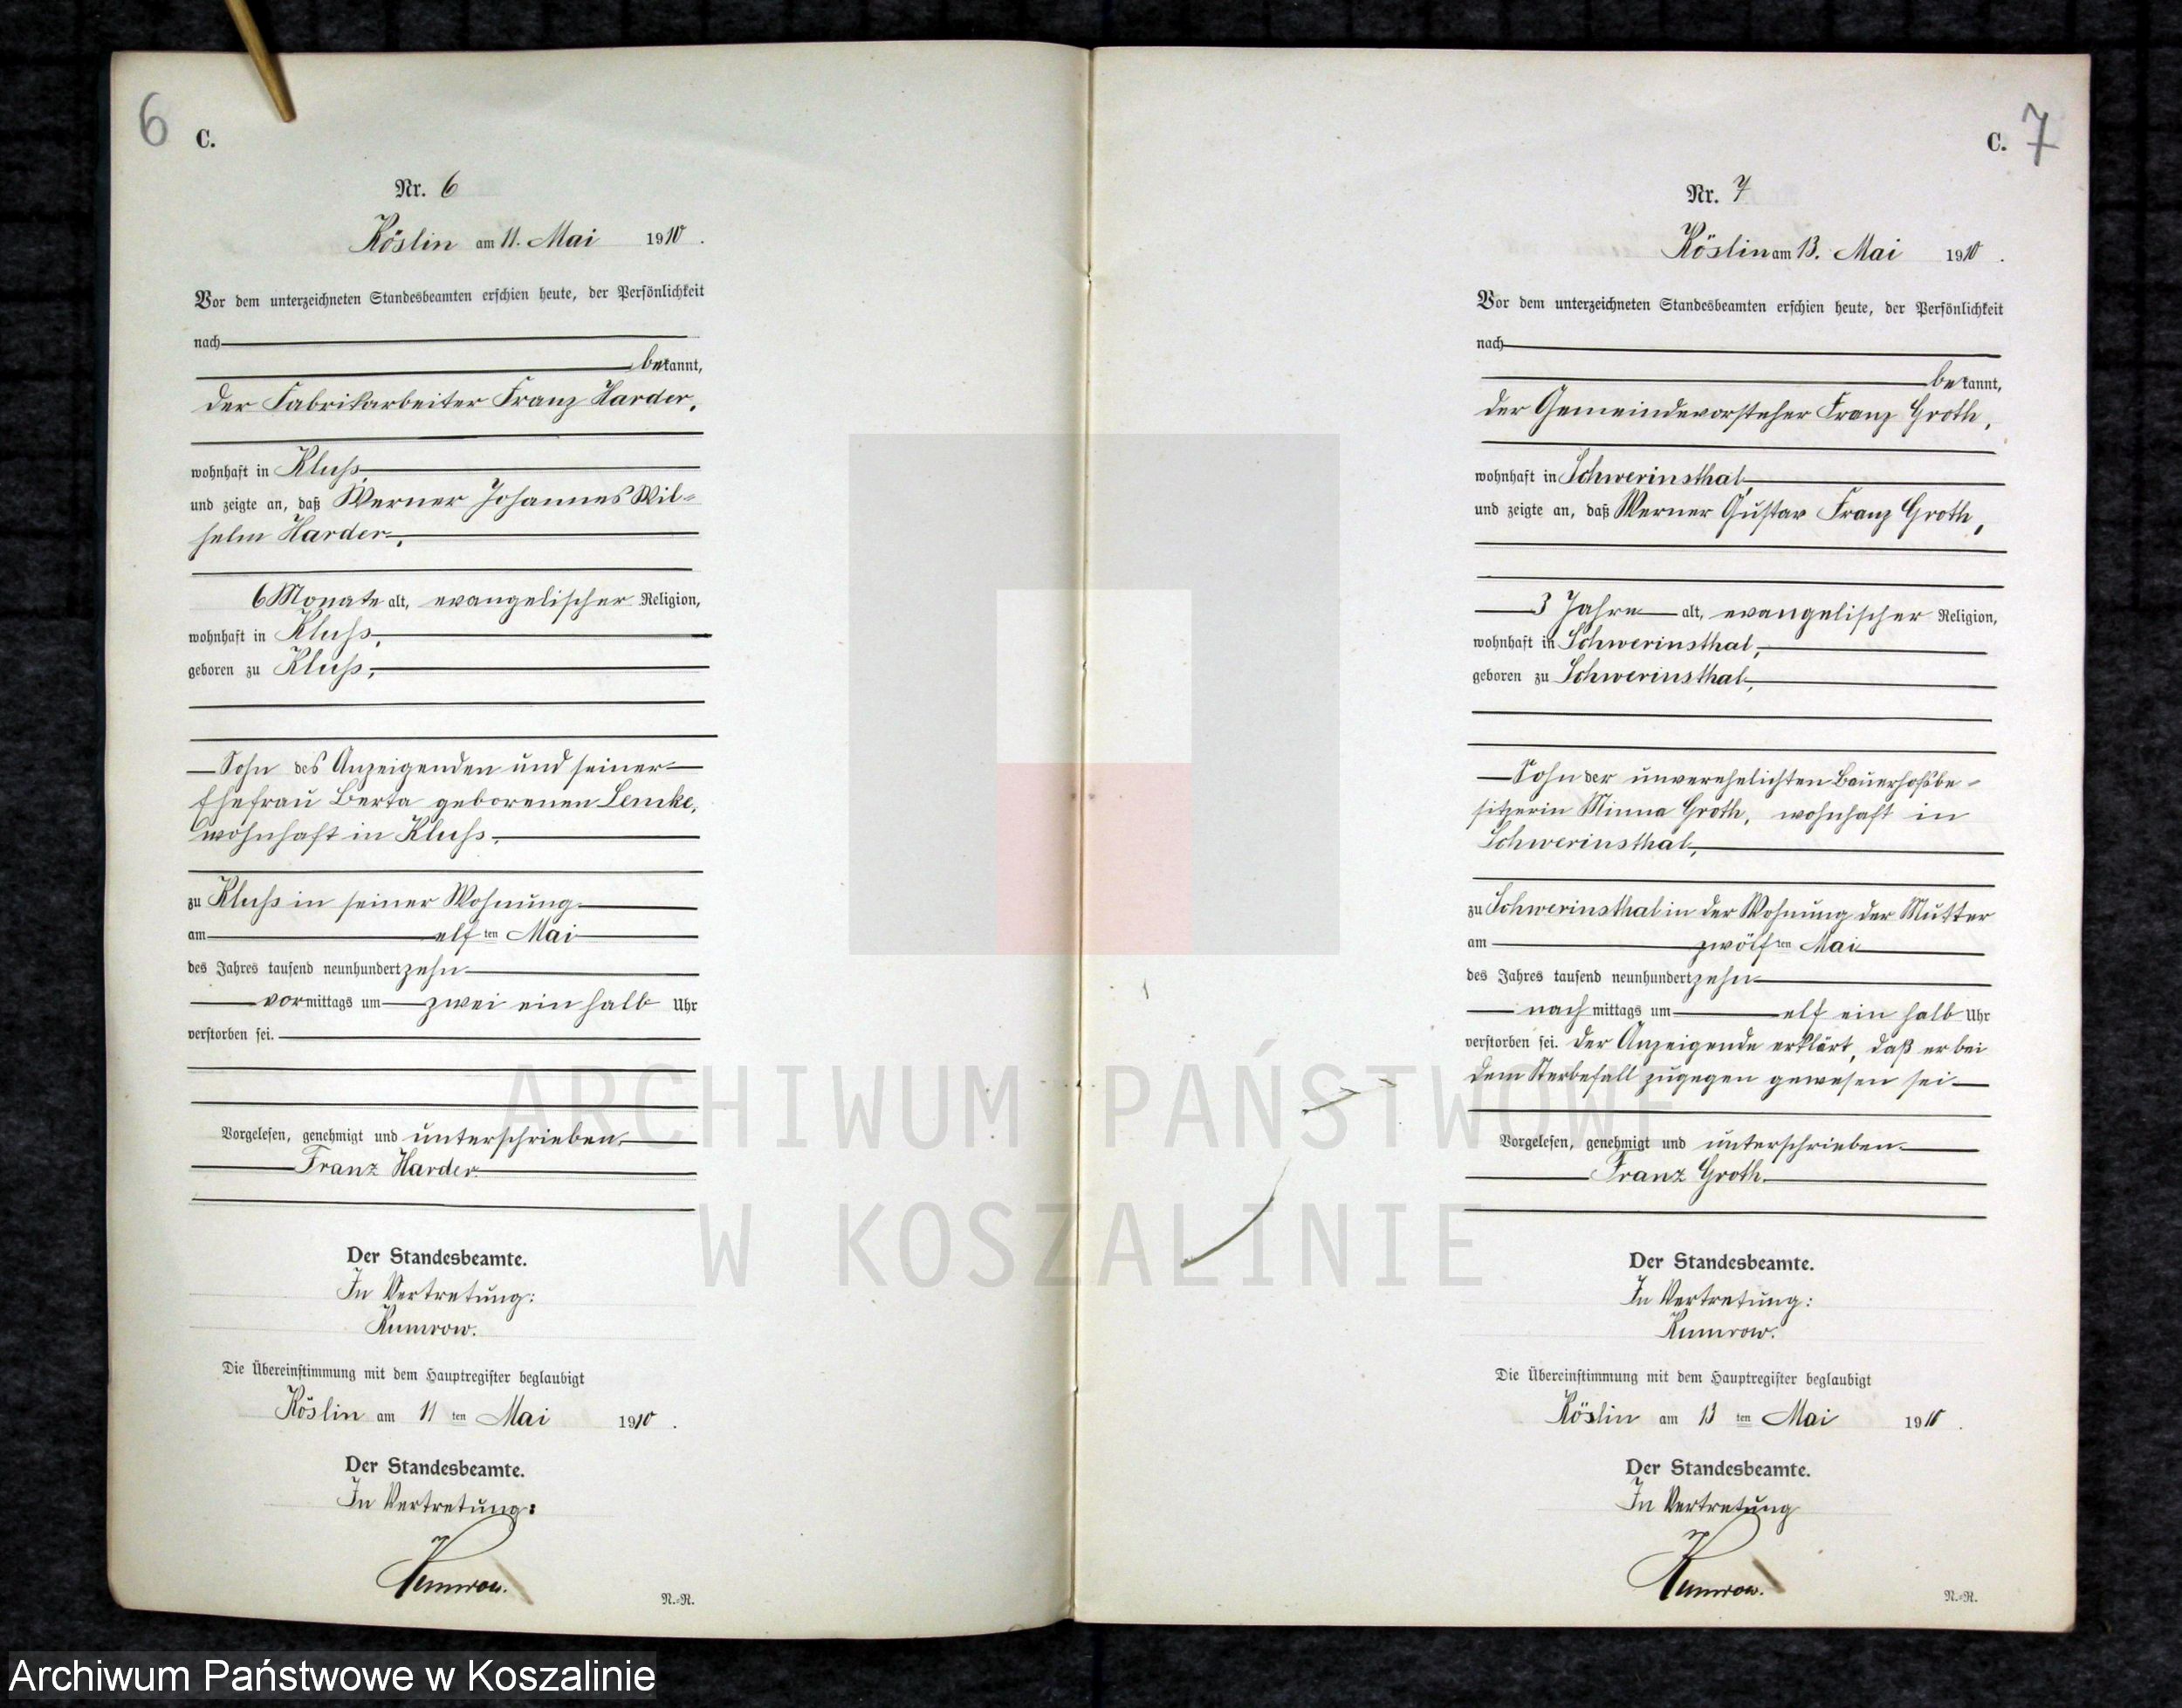 6
C.
Nr. 6
Köslin am 11. Mai 1910.
Vor dem unterzeichneten Standesbeamten erschien heute, der Persönlichkeit
nach
bekannt,
der Fabrikarbeiter Franz Harder,
wohnhaft in Kluss
und zeigte an, daß Werner Johannes Wil-
helm Harder,
6 Monate alt, evangelischer Religion,
wohnhaft in Kluss,
geboren zu Kluss,
Sohn des Anzeigenden und seiner
Ehefrau Berta geborenen Lemke,
wohnhaft in Kluss,
zu Kluss in seiner Wohnung
am elf ten Mai
des Jahres tausend neunhundert zehn
vormittags um zwei ein halb Uhr
verstorben sei.
Vorgelesen, genehmigt und unterschrieben
Franz Harder
Der Standesbeamte.
In Vertretung:
Kumrow.
Die Übereinstimmung mit dem Hauptregister beglaubigt
Köslin am 11 ten Mai 1910.
Der Standesbeamte.
In Vertretung:
Kumrow.
N.-R.
C. 7
Nr. 7
Köslin am 13. Mai 1910.
Vor dem unterzeichneten Standesbeamten erschien heute, der Persönlichkeit
nach
bekannt,
der Gemeindevorsteher Franz Groth,
wohnhaft in Schwerinsthal,
und zeigte an, daß Werner Gustav Franz Groth,
3 Jahre alt, evangelischer Religion,
wohnhaft in Schwerinsthal,
geboren zu Schwerinsthal,
Sohn der unverehelichten Bauerhofsbe-
sitzerin Minna Groth, wohnhaft in
Schwerinsthal,
zu Schwerinsthal in der Wohnung der Mutter
am zwölf ten Mai
des Jahres tausend neunhundert zehn
nachmittags um elf ein halb Uhr
verstorben sei. Der Anzeigende erklärt, daß er bei
dem Sterbefall zugegen gewesen sei
Vorgelesen, genehmigt und unterschrieben.
Franz Groth.
Der Standesbeamte.
In Vertretung:
Kumrow.
Die Übereinstimmung mit dem Hauptregister beglaubigt
Köslin am 13 ten Mai 1910.
Der Standesbeamte.
In Vertretung
Kumrow.
N.-R.
ARCHIWUM PAŃSTWOWE
W KOSZALINIE
Archiwum Państwowe w Koszalinie